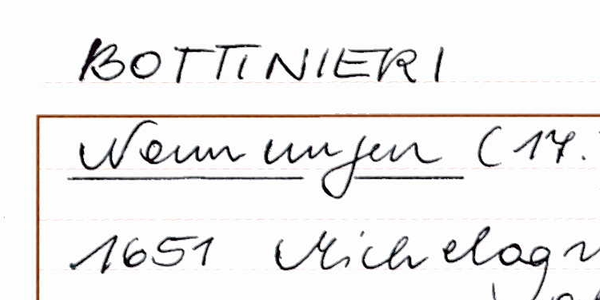 BOTTINIERI
Nennungen (17.
1651 Michelagn